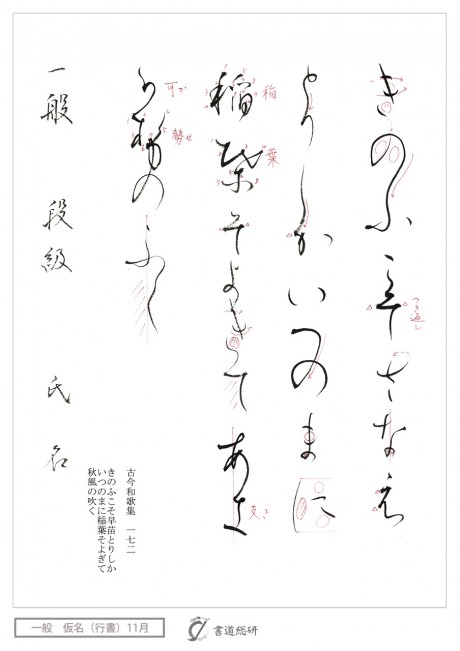 きのふこそさなへ
つき返し
とりしかいつのまに
稲葉そよきてあ支
稲
葉
支き
可勢のふく
可か
勢せ
古今和歌集 一七二
きのふこそ早苗とりしか
いつのまに稲葉そよぎて
秋風の吹く
一般 段級 氏名
一般 仮名（行書）11月
書道総研